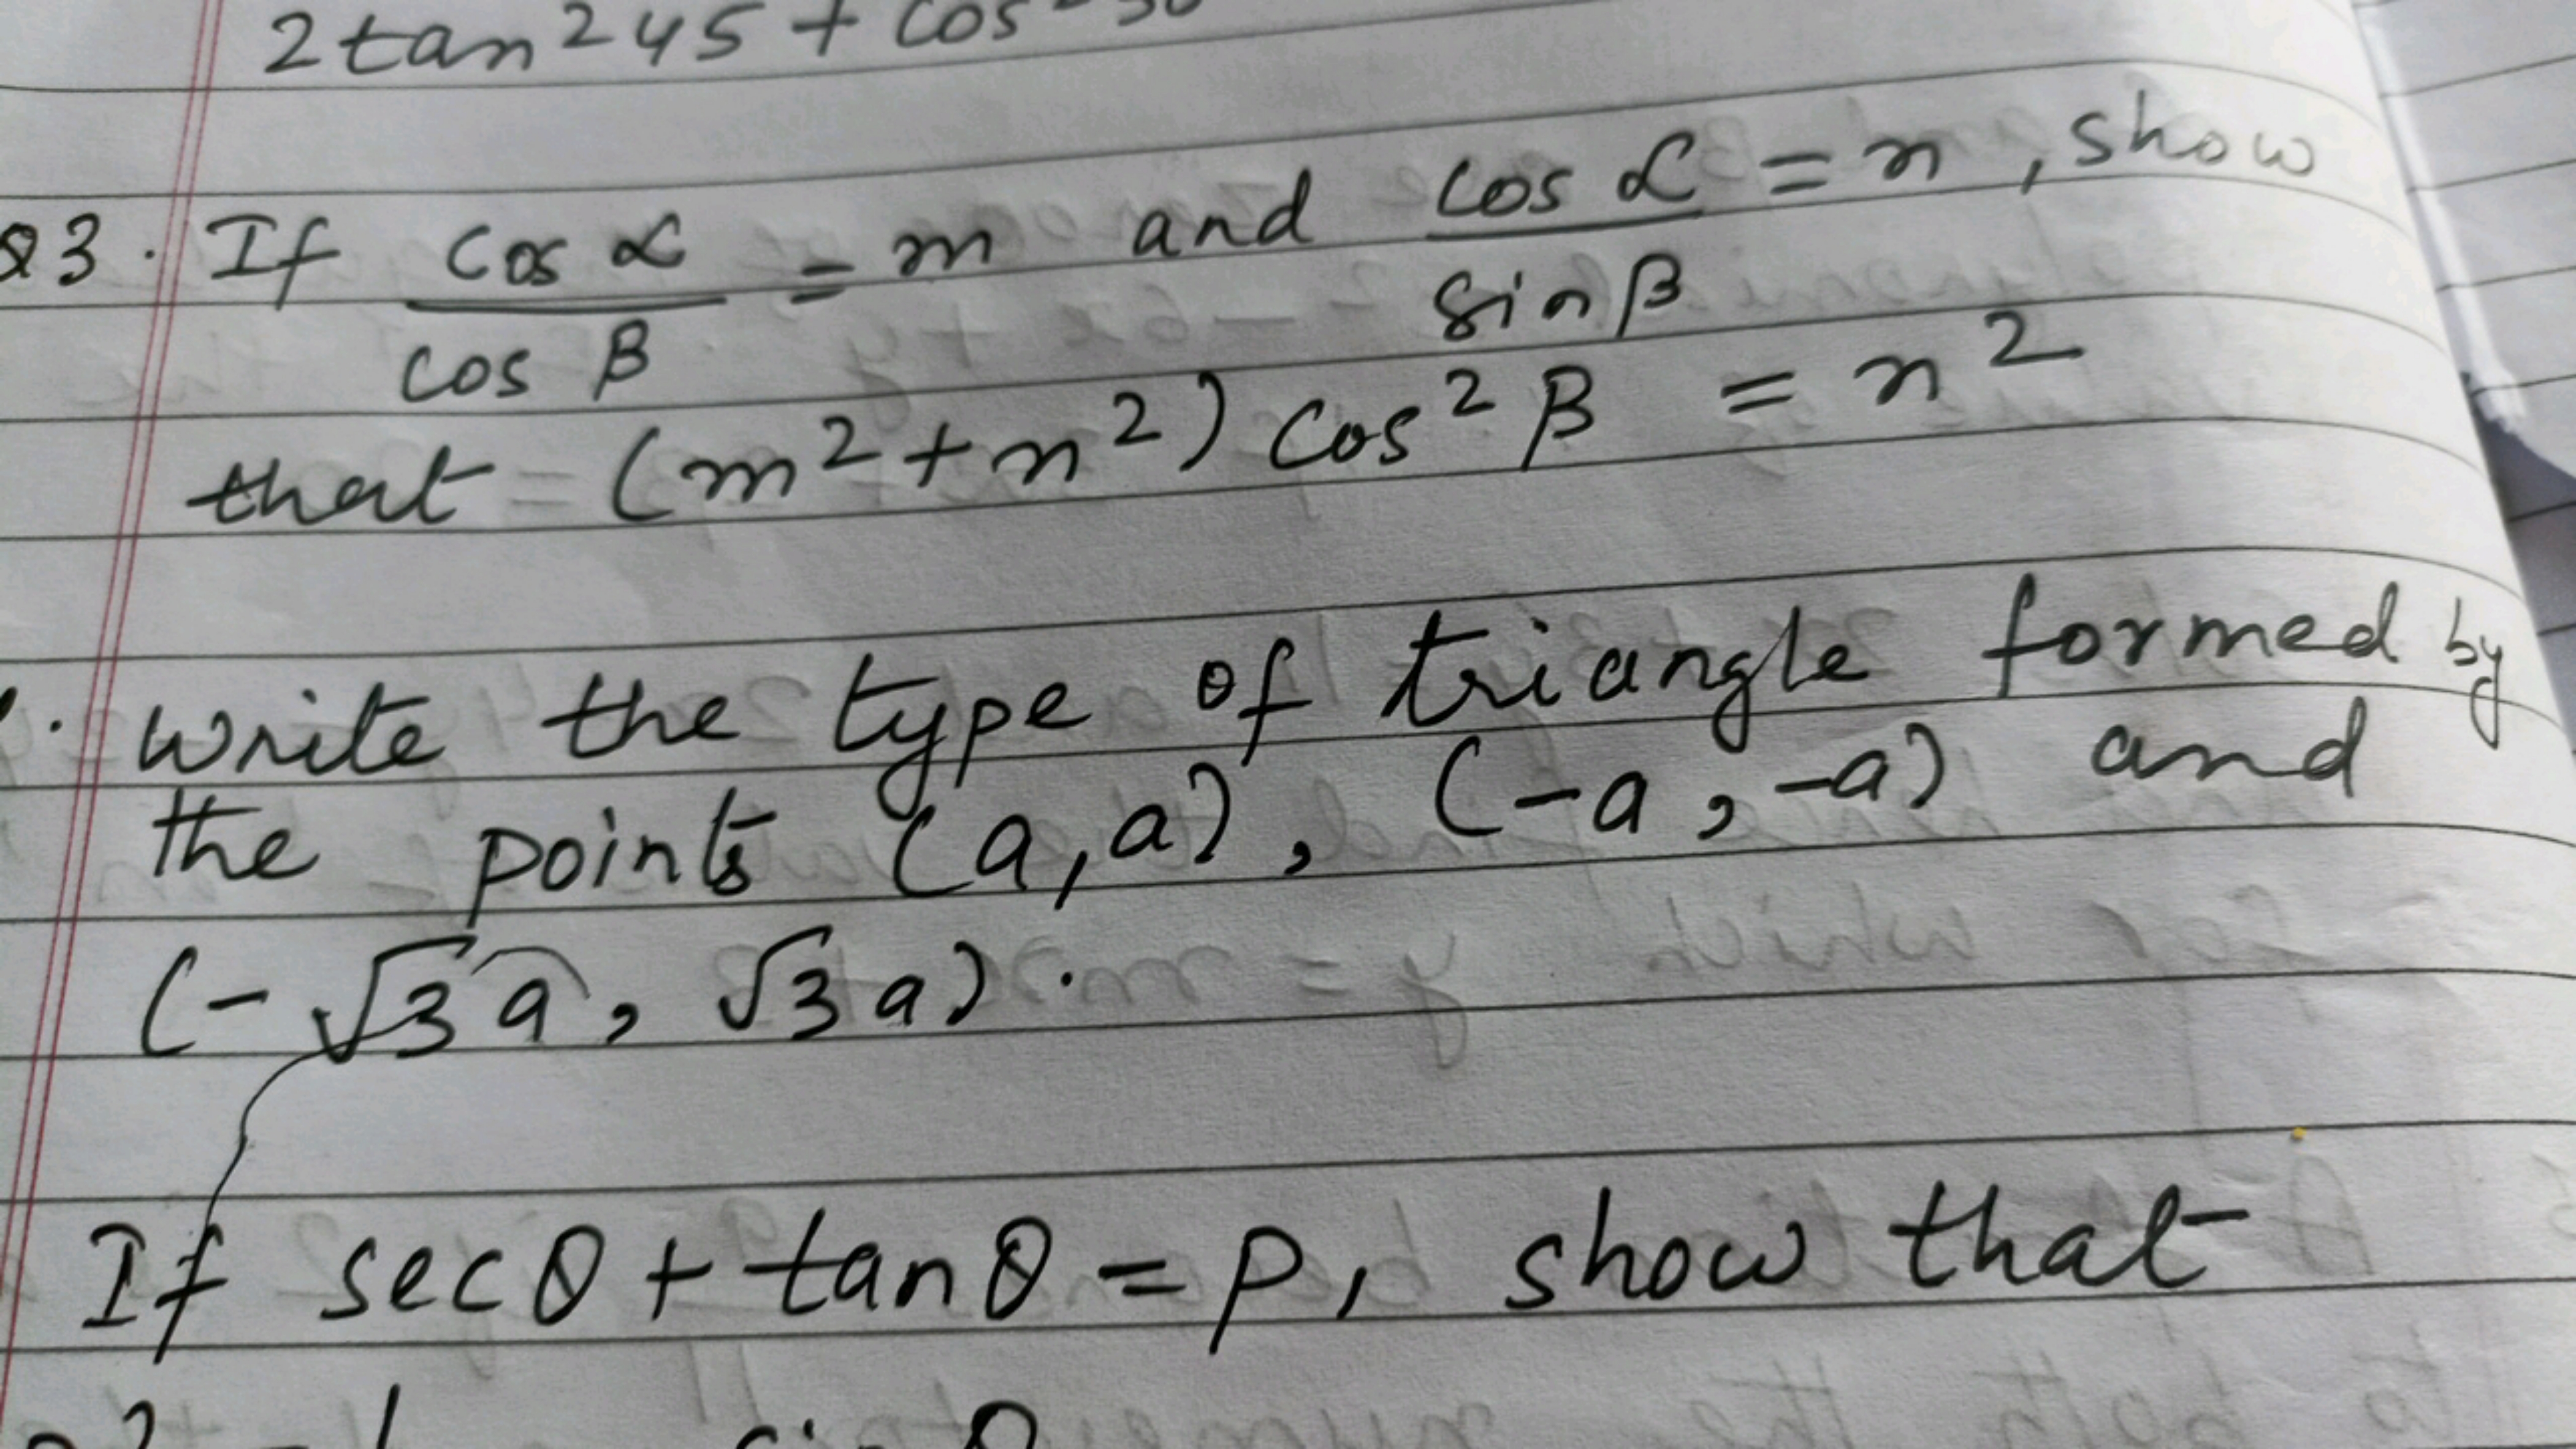 2tan²45 + cos²30
Q3. If cos α / cos β = m and cos α / sin β = n, show
that = (m² + n²) cos² β = n²
Write the type of triangle formed by
the points (a, a), (-a, -a) and
(-√3 a, √3 a).
If sec θ + tan θ = p, show that
sin θ